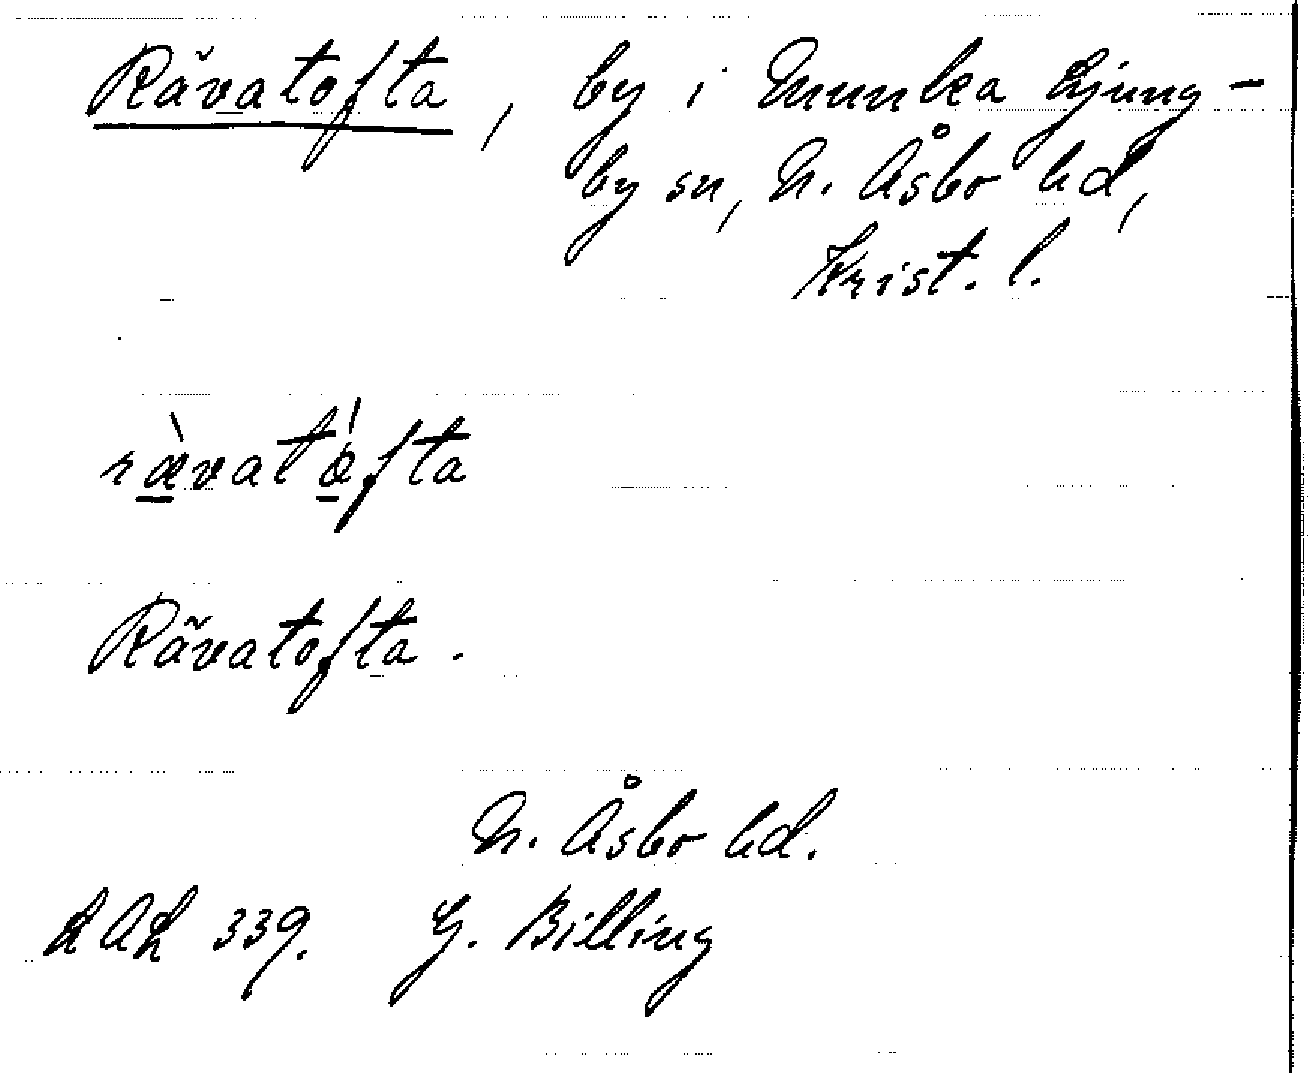 Rävatofta, by i Munka Ljung-
by sn, N. Åsbo hd,
Krist. l.
rævatofta
Rävatofta.
N. Åsbo hd.
LAL 339. G. Billing